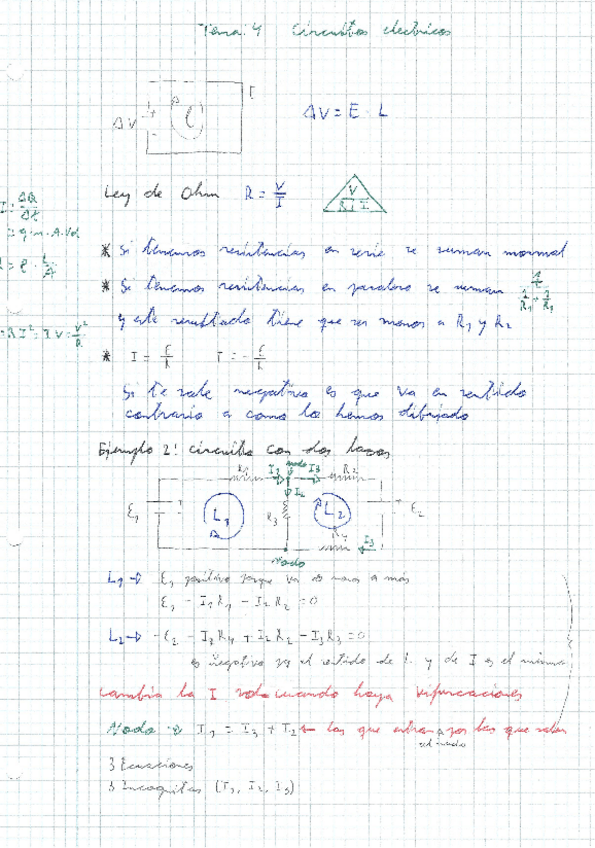 Tema 4 Circuitos electricos
I
ΔV
ΔV = E · L
I = ΔQ/Δt
Ley de Ohm R = V/I
V
R I
= q·n·A·Vd
* Si tenemos resistencias en serie se suman normal
= ρ · L/A
* Si tenemos resistencias en paralelo se suman 1/R1 + 1/R2
y este resultado tiene que ser menos a R1 y R2
R I² = I V = V²/R
* I = ε/R I = -ε/R
Si te sale negativo es que va en sentido
contrario a como lo hemos dibujado
Ejemplo 2: circuito con dos lazos
nodo
R1 I1 I3 R2
I2
ε1 L1 R3 L2 ε2
R4 I3
Nodo
L1 → ε1 positivo porque va de menos a más
ε1 - I1R1 - I2R2 = 0
L2 → -ε2 - I3R4 + I2R2 - I3R3 = 0
es negativo pq el sentido de L y de I es el mismo
Cambia la I solo cuando haya vifurcaciones
Nodo → I1 = I3 + I2 ← las que entran a por las que salen
del nodo
3 Ecuaciones
3 Incognitas (I1, I2, I3)